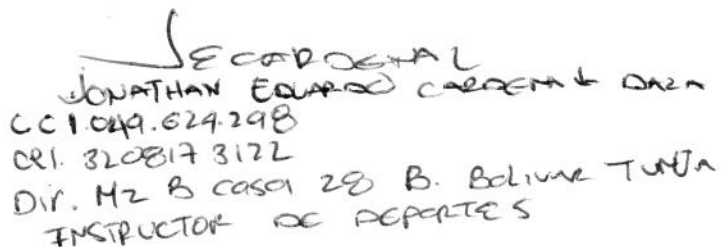 JECARDENAL
JONATHAN EDUARDO CARDENAL DAZA
CC 1.049.624.298
cel. 320817 3122
Dir. Mz B casa 28 B. Bolivar TUNJA
INSTRUCTOR DE DEPORTES